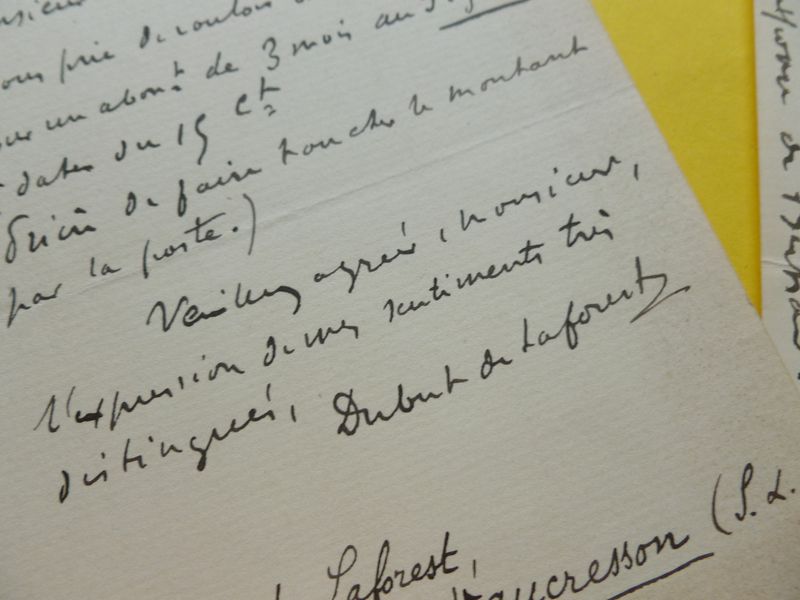 vous prie de vouloir
pour un abont de 3 mois au
dater du 15 ct
(Prière de faire toucher le montant
par la poste.)
Veuillez agréer, Monsieur,
l'expression de mes sentiments très
distingués,
Dubut de Laforest
Laforest,
Vaucresson (S. &